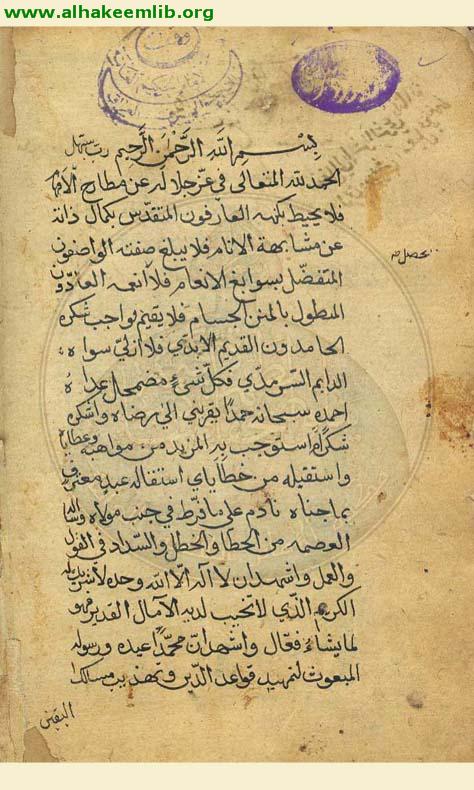 www.alhakeemlib.org
بسم الله الرحمن الرحيم رب سهل
الحمد لله المتعالي في عز جلاله عن مطارح الافهام
فلا يحيط بكنهه العارفون المتقدس بكمال ذاته
عن مشابهة الانام فلا يبلغ صفته الواصفون
المتفضل بسوابغ الانعام فلا نعمه العادون
المتطول بالمنن الجسام فلا يقيم بواجب شكره
الحامدون القديم الابدي فلا ازلي سواه
الدايم السرمدي فكل شيء مضمحل عداه
احمده سبحانه حمدا يقربني الى رضاه واشكره
شكرا استوجب به المزيد من مواهبه وعطاياه
واستقيله من خطاياي استقالة عبد معترف
بما جناه نادم على ما فرط في جنب مولاه واساله
العصمه من الخطا والخطل والسداد في القول
والعمل واشهد ان لا اله الا الله وحده لا شريك له
الكريم الذي لا تخيب لديه الآمال القدير فهو
لما يشاء فعال واشهد ان محمدا عبده ورسوله
المبعوث لتمهيد قواعد الدين وتهذيب مسالك
اليقين